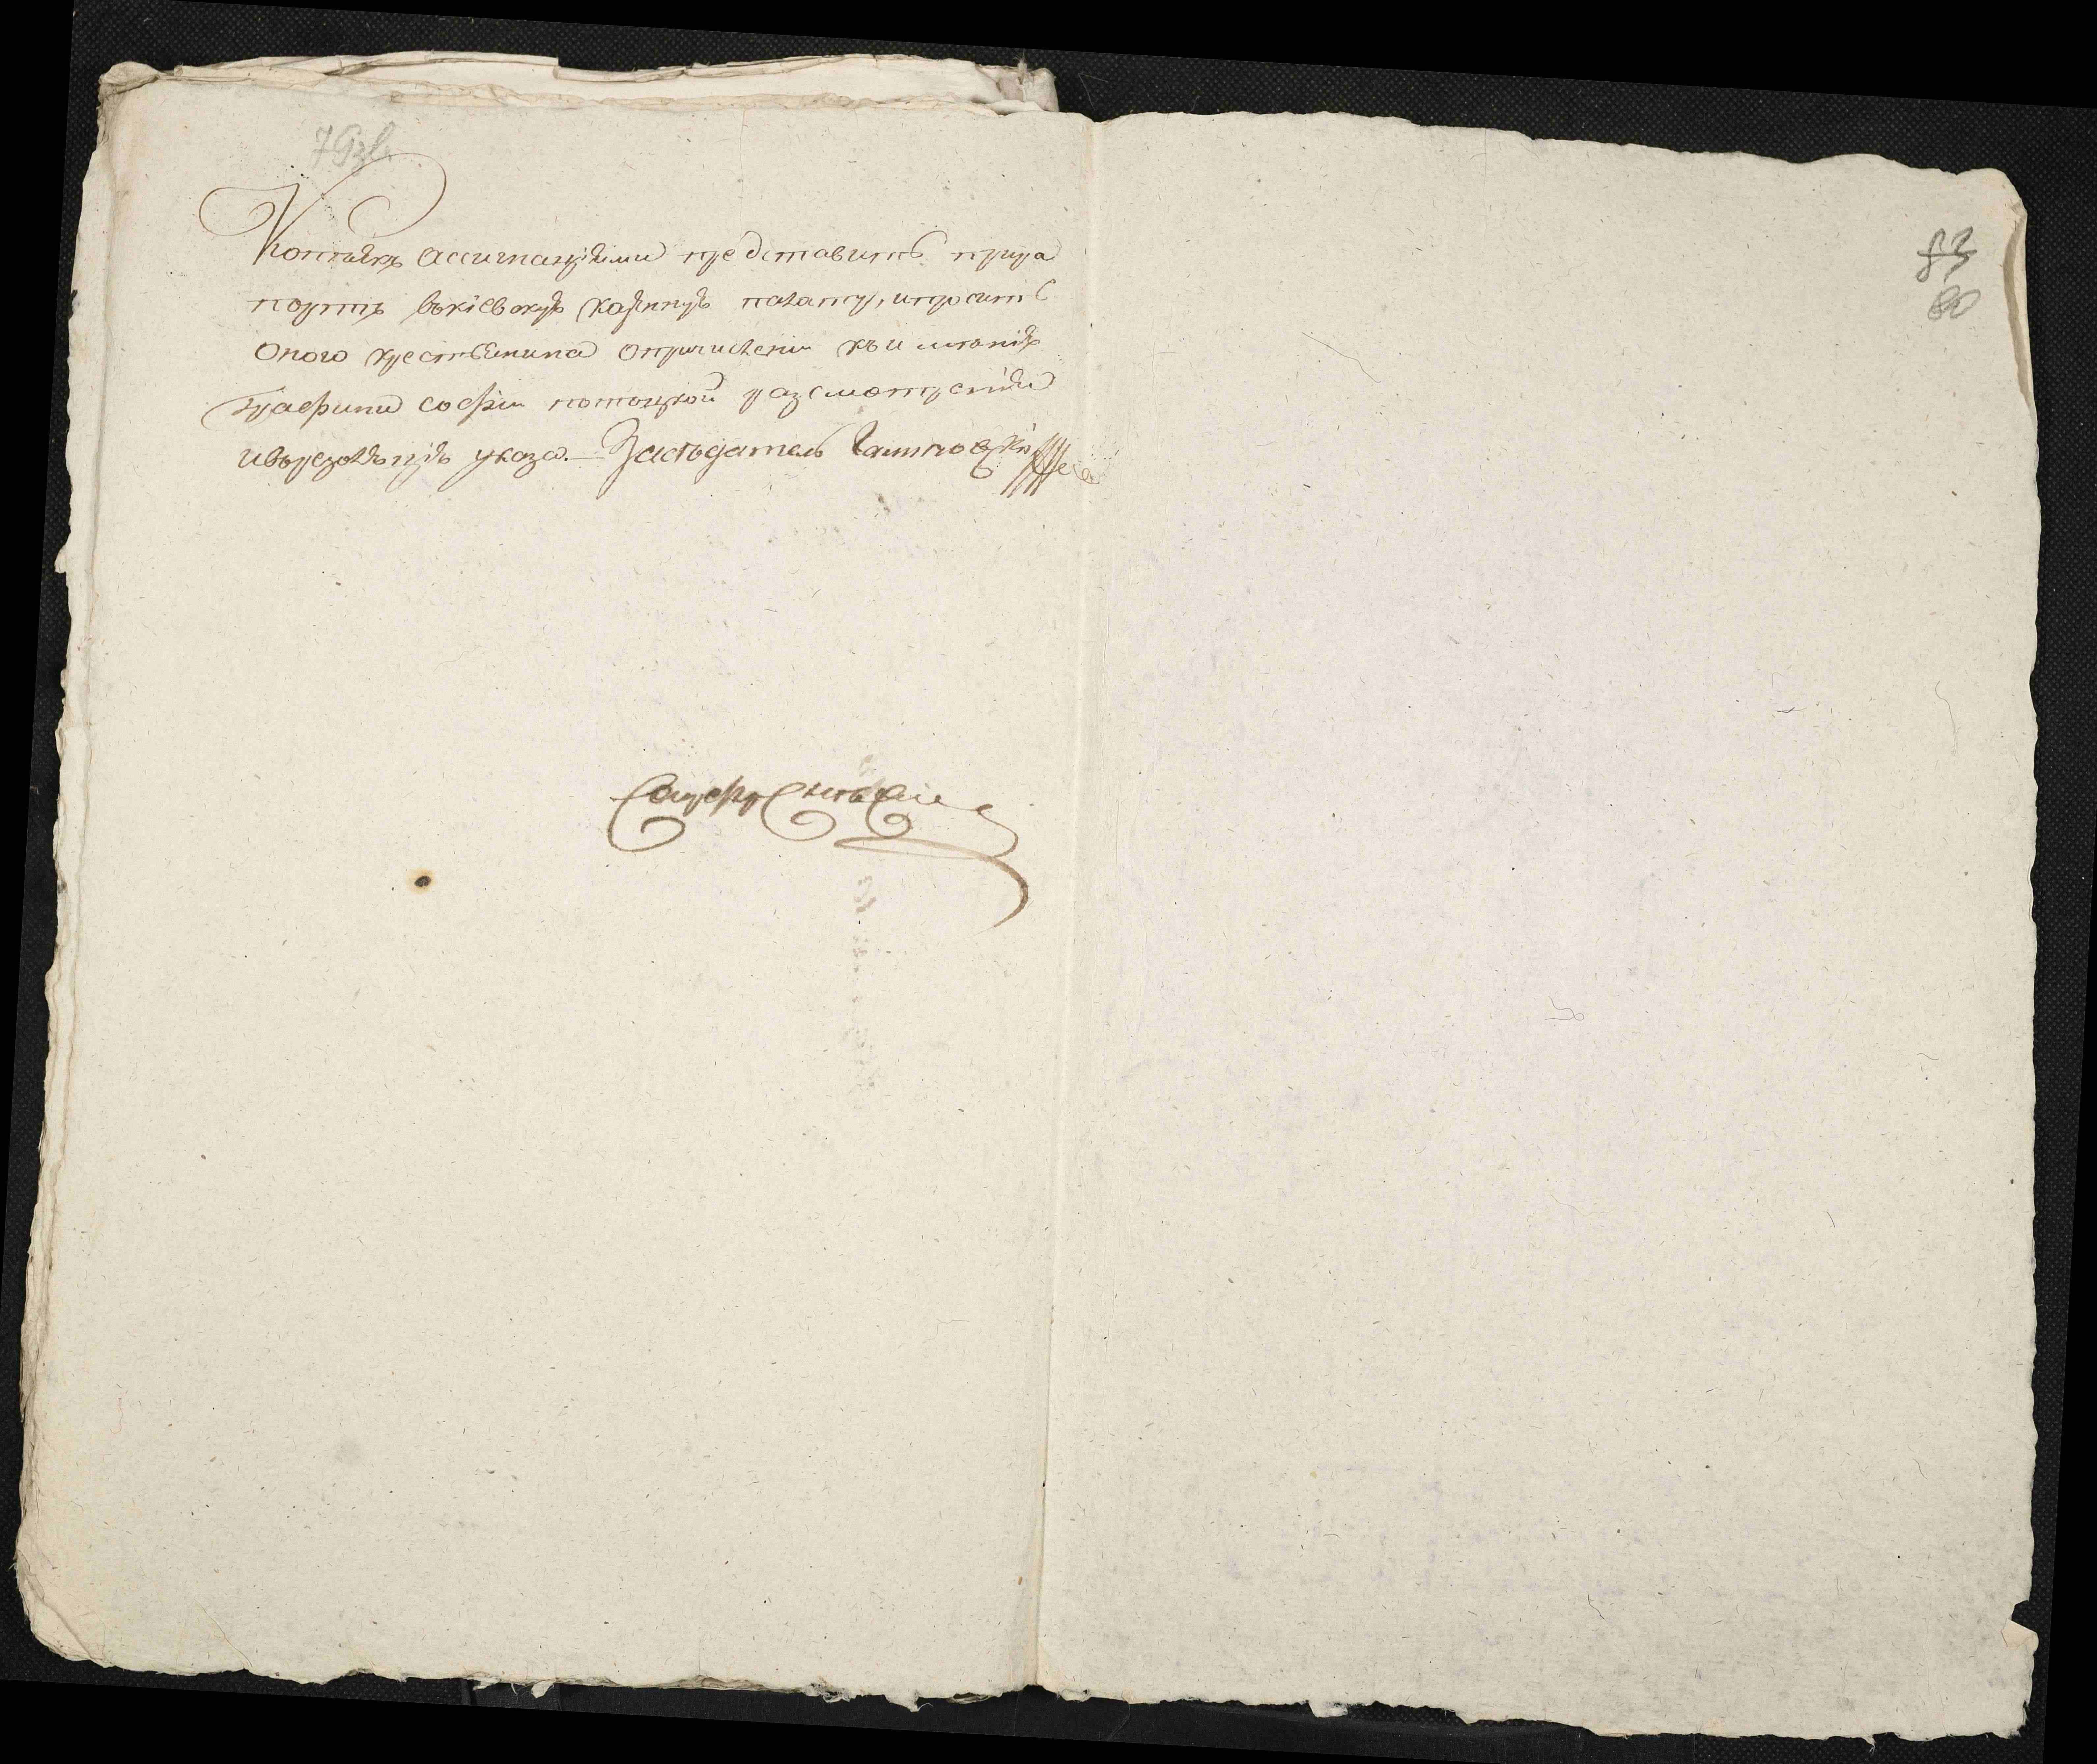 79зв
Копѣекъ ассигнацiями представить прира
портѣ въкіевскую казенную палату, ипросить
оного крестьянина опричисленiи къимѣнiю
графини софiи потоцкой разсмотренiя
иврезолюцiю указа. — Засѣдатель
83
80